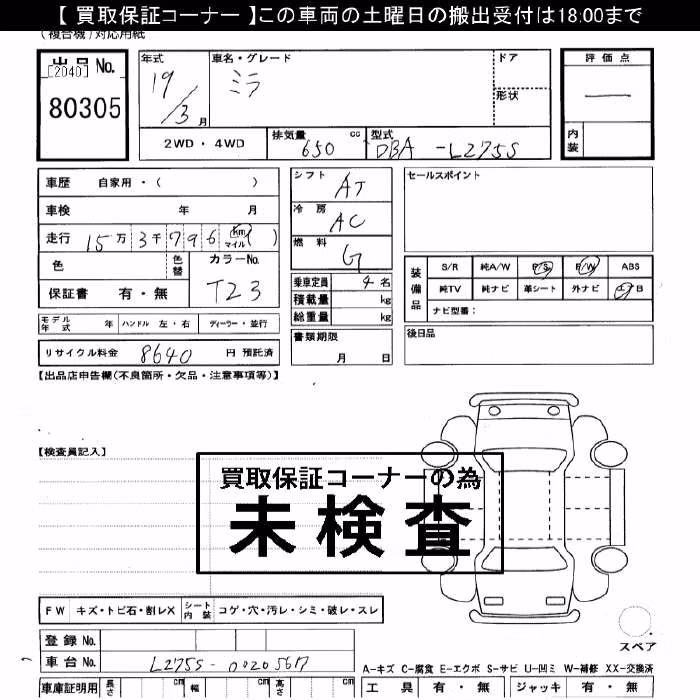 【 買取保証コーナー 】この車両の土曜日の搬出受付は18:00まで
(複合機)対応用紙
出品 No.
[2040]
80305
年式 車名・グレード ドア
19/3 月 ミラ 形状
2WD ・ 4WD 排気量 650 cc 型式 DBA -L275S
評価点
―
内装
車歴 自家用・( )
車検 年 月
走行 15万 3千 796 km マイル ( )
色 色替 カラーNo.
保証書 有・無 T23
モデル年式 年 ハンドル 左・右 ディーラー・並行
リサイクル料金 8640 円 預託済
シフト AT
冷房 AC
燃料 G
乗車定員 4 名
積載量 kg
総重量 kg
書類期限
月 日
セールスポイント
装備品 S/R 純A/W P/S P/W ABS
純TV 純ナビ 革シート 外ナビ エアB
ナビ型番:
後日品
【出品店申告欄(不良箇所・欠品・注意事項等)】
【検査員記入】
買取保証コーナーの為
未検査
FW キズ・トビ石・割レX シート内装 コゲ・穴・汚レ・シミ・破レ・スレ
スペア
登録 No.
車台 No. L275S-0020567
A-キズ C-腐食 E-エクボ S-サビ U-凹ミ W-補修 XX-交換済
車庫証明用 長さ cm 幅 cm 高さ cm
工具 有・無 ジャッキ 有・無